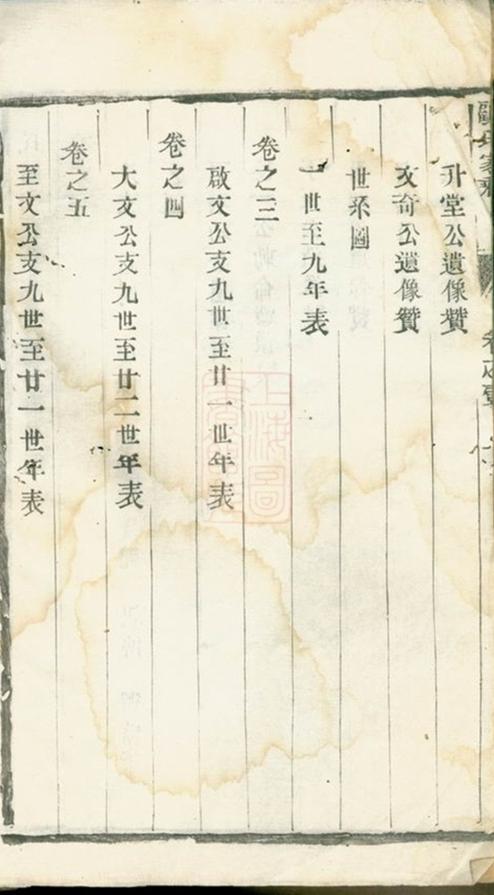 升堂公遺像贊
文奇公遺像贊
世系圖
一世至九年表
卷之三
啟文公支九世至廿一世年表
卷之四
大文公支九世至廿二世年表
卷之五
至文公支九世至廿一世年表